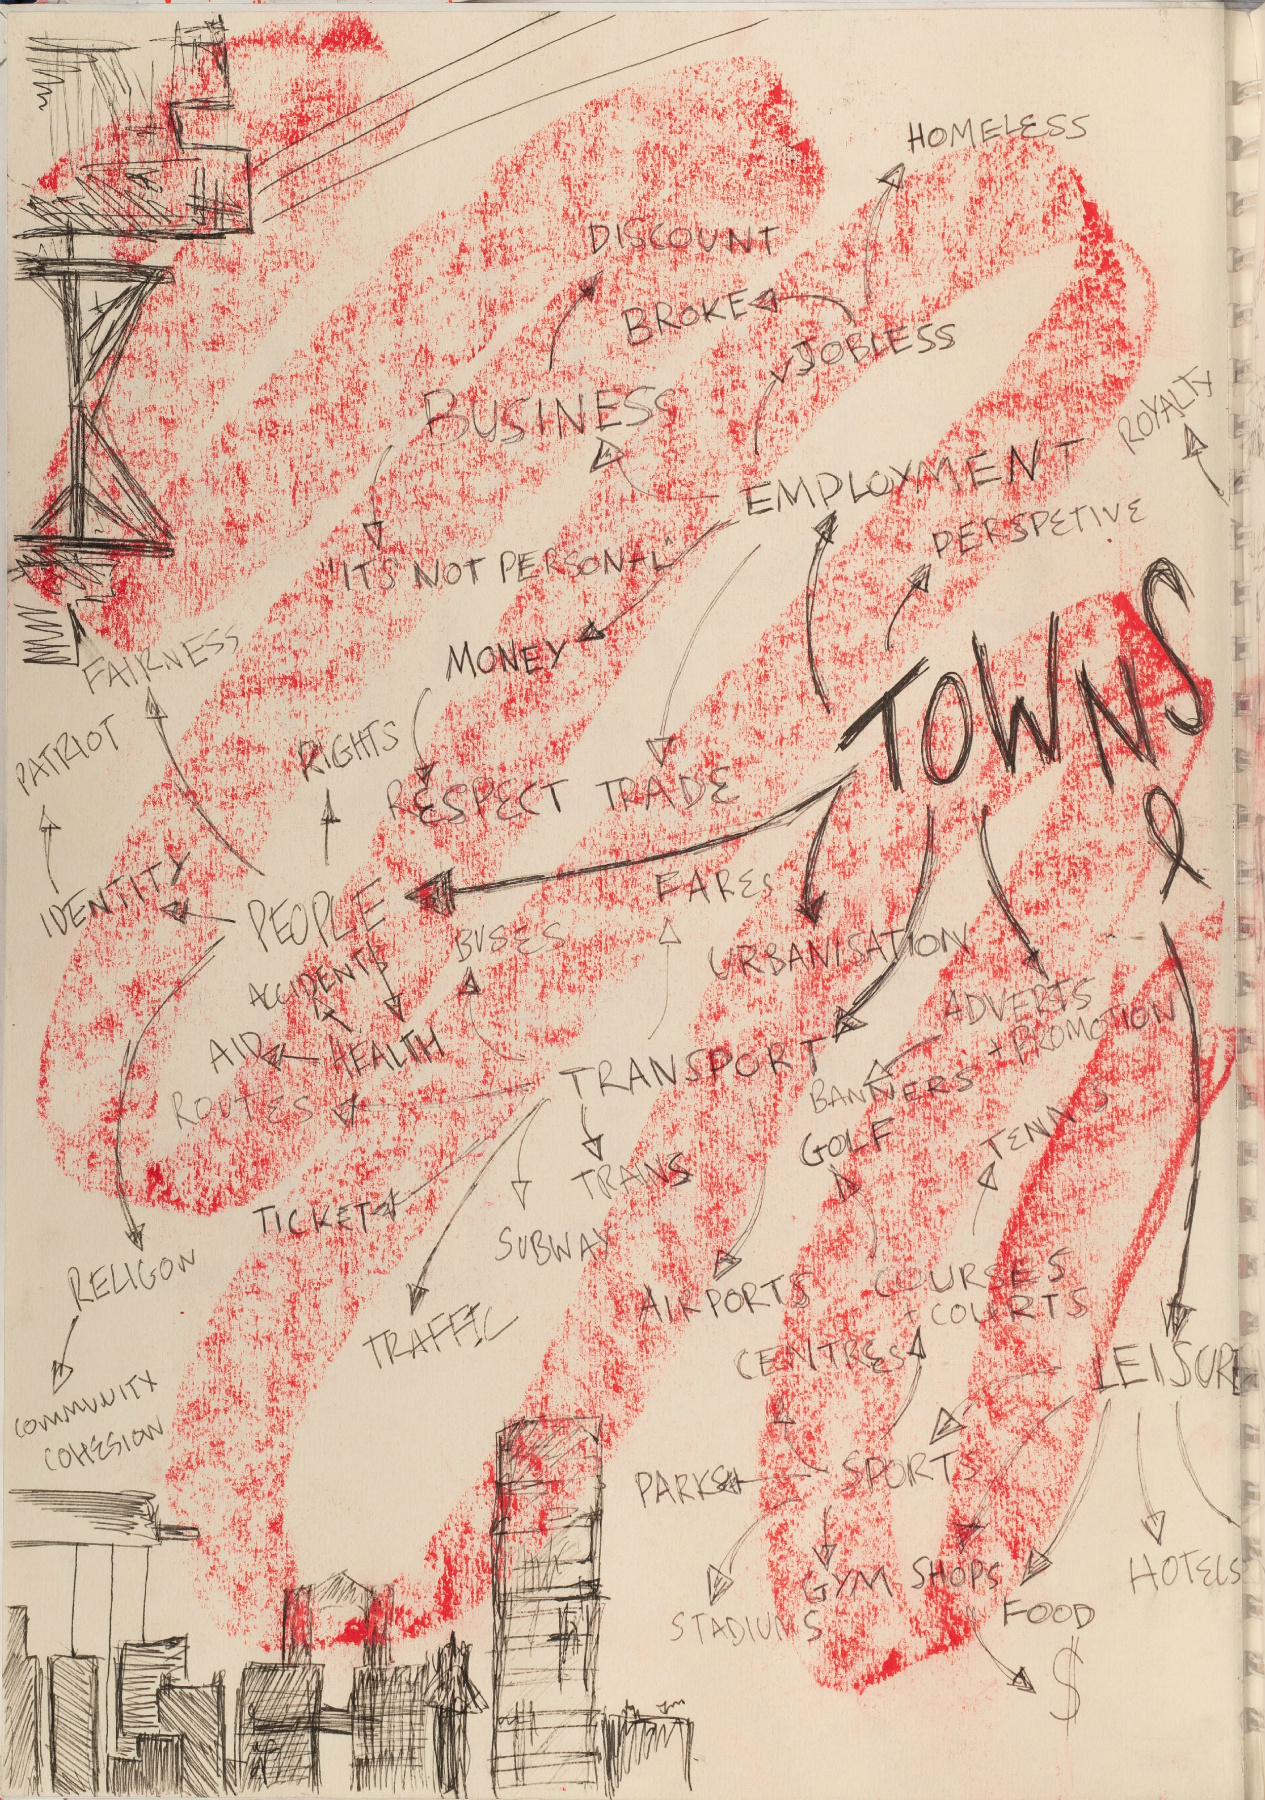 HOMELESS
DISCOUNT
BROKE
JOBLESS
BUSINESS
ROYALTY
EMPLOYMENT
PERSPETIVE
"ITS NOT PERSONAL"
TOWNS
MONEY
FAIRNESS
PATRIOT
RIGHTS
RESPECT TRADE
&
IDENTITY
PEOPLE
FARES
BUSES
URBANISATION
ACCIDENTS
ADVERTS
+ PROMOTION
AID
HEALTH
TRANSPORT
ROUTES
BANNERS
GOLF
TENNIS
TRAINS
TICKET
SUBWAY
RELIGON
AIRPORTS
COURSES
+ COURTS
TRAFFIC
CENTRES
LEISURE
COMMUNITY
COHESION
PARKS
SPORTS
GYM
SHOPS
HOTELS
STADIUMS
FOOD
$